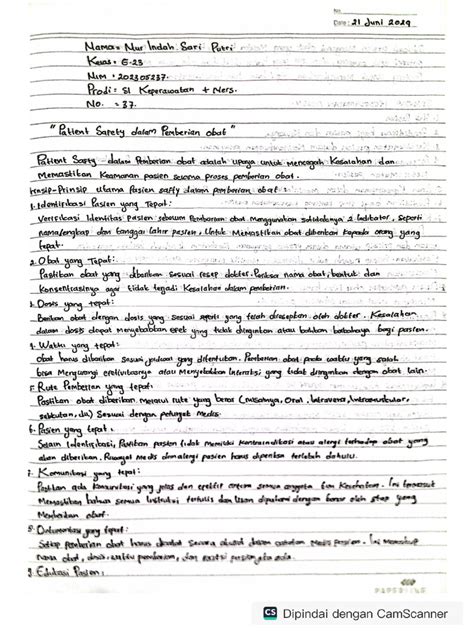 No.
Date: 21 Juni 2024
Nama = Nur Indah Sari Putri
Kelas = E-23
NIM = 202305237.
Prodi = S1 Keperawatan + Ners.
No. = 37.
"Patient Safety dalam Pemberian obat"
Patient Safty dalam Pemberian obat adalah upaya untuk mencegah Kesalahan dan
Memastikan Keamanan pasien selama proses pemberian obat.
Prinsip utama Pasien safty dalam pemberian obat :
1. Identifikasi Pasien yang Tepat:
Verifikasi Identitas pasien sebelum Pemberian obat. Menggunakan 2 Indikator, Seperti
nama lengkap dan tanggal lahir pasien, Untuk Memastikan obat diberikan kepada orang yang
tepat.
2. Obat yang Tepat:
Pastikan obat yang diberikan sesuai resep dokter. Periksa nama obat, bentuk dan
Konsentrasinya agar tidak terjadi Kesalahan dalam pemberian.
3. Dosis yang tepat:
Berikan obat dengan dosis yang Sesuai seperti yang telah diresepkan oleh dokter. Kesalahan
dalam dosis dapat Menyebabkan efek yang tidak diinginkan atau bahkan berbahaya bagi pasien.
4. Waktu yang tepat:
Obat harus diberikan Sesuai jadwal yang ditentukan. Pemberian obat pada waktu yang salah
bisa Mengurangi efektivitasnya atau Menyebabkan Interaksi yang tidak diinginkan dengan obat lain.
5. Rute Pemberian yang tepat:
Pastikan obat diberikan Melalui rute yang benar (misalnya, Oral, Intravena, Intramuskular,
subkutan, dll) Sesuai dengan petunjuk Medis.
6. Pasien yang tepat:
Selain Identifikasi, Pastikan pasien tidak memiliki Kontraindikasi atau alergi terhadap obat yang
akan diberikan. Riwayat Medis dan alergi pasien harus diperiksa terlebih dahulu.
7. Komunikasi yang tepat:
Pastikan ada komunikasi yang jelas dan efektif antara semua anggota tim Kesehatan. Ini termasuk
Memastikan bahwa semua Instruksi tertulis dan lisan dipahami dengan benar oleh staf yang
Memberikan obat.
8. Dokumentasi yang tepat:
Setiap pemberian obat harus dicatat Secara akurat dalam catatan Medis pasien. Ini mencakup
nama obat, dosis, waktu pemberian, dan reaksi pasien
9. Edukasi Pasien:
CS Dipindai dengan CamScanner